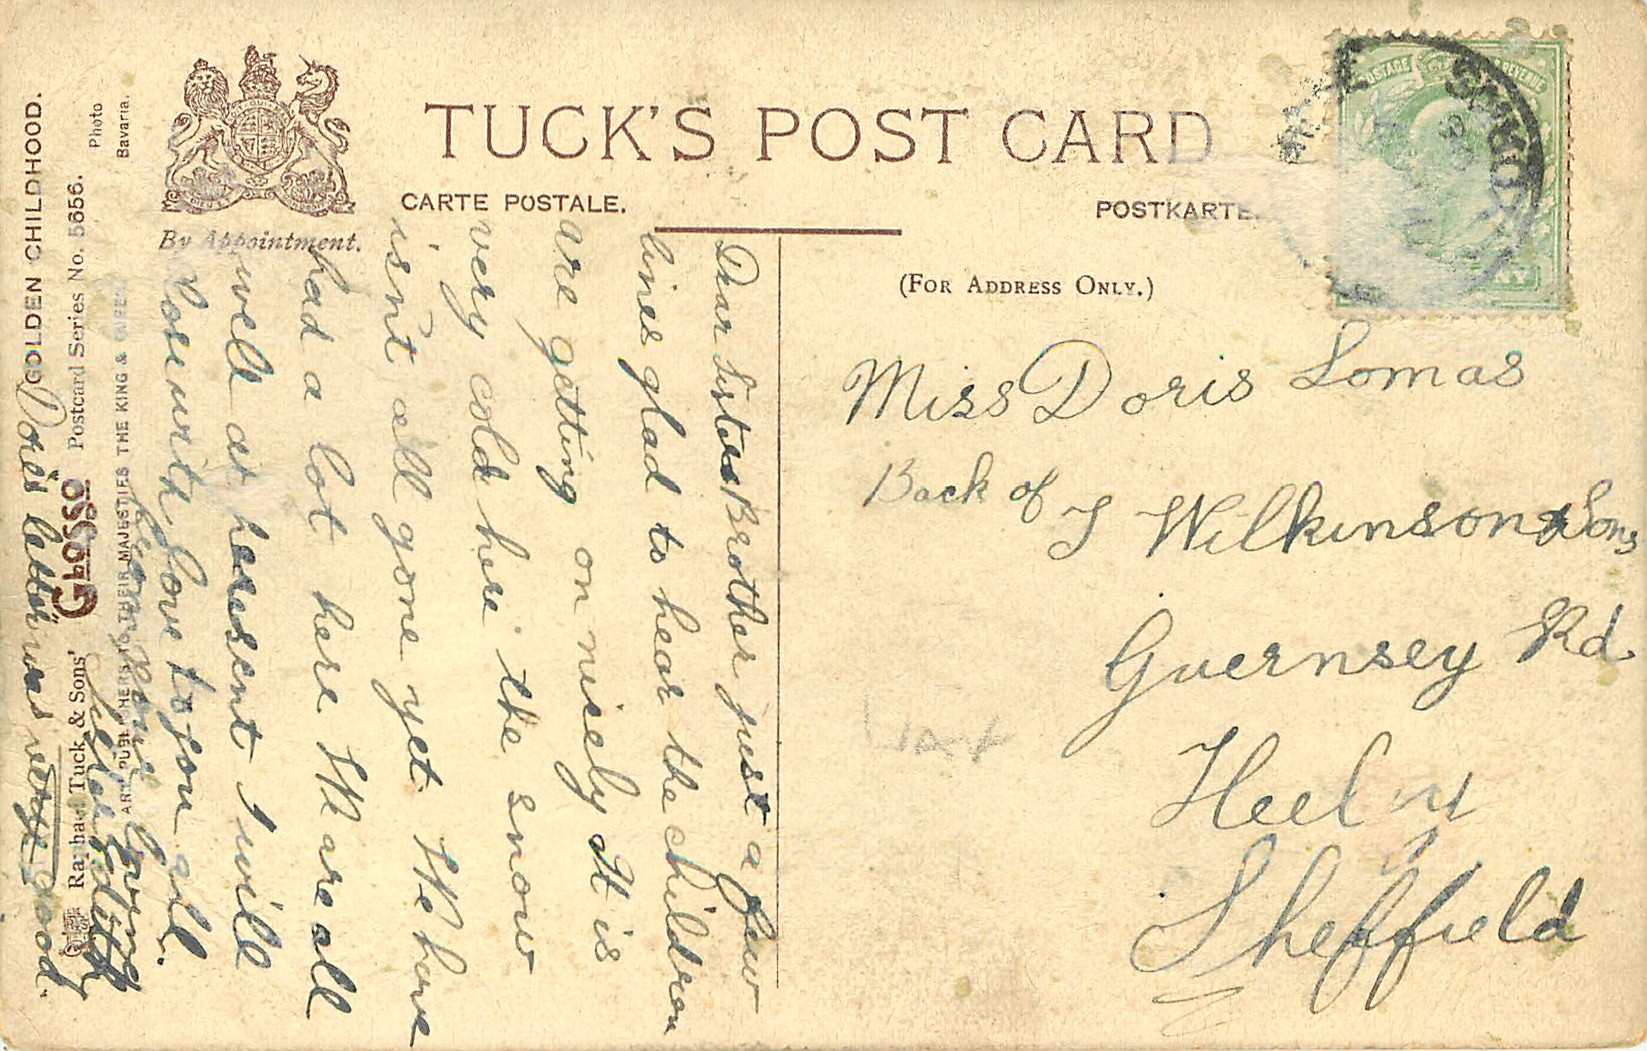 TUCK'S POST CARD
CARTE POSTALE.
POSTKARTE.
(FOR ADDRESS ONLY.)
By Appointment.
GOLDEN CHILDHOOD.
Raphael Tuck & Sons' GLOSSO Postcard Series No. 5656.
Photo
Bavaria.
ART PUBLISHERS TO THEIR MAJESTIES THE KING & QUEEN
POSTAGE REVENUE
Miss Doris Lomas
Back of J Wilkinson & Sons
Guernsey Rd
Heeley
Sheffield
Dear Sister Brother just a few
lines glad to hear the children
are getting on nicely It is
very cold here the snow
isnt all gone yet We have
had a lot here We are all
well at peresent I will
love to you all
from your loving
Sister Edith
Doris letter was very good.